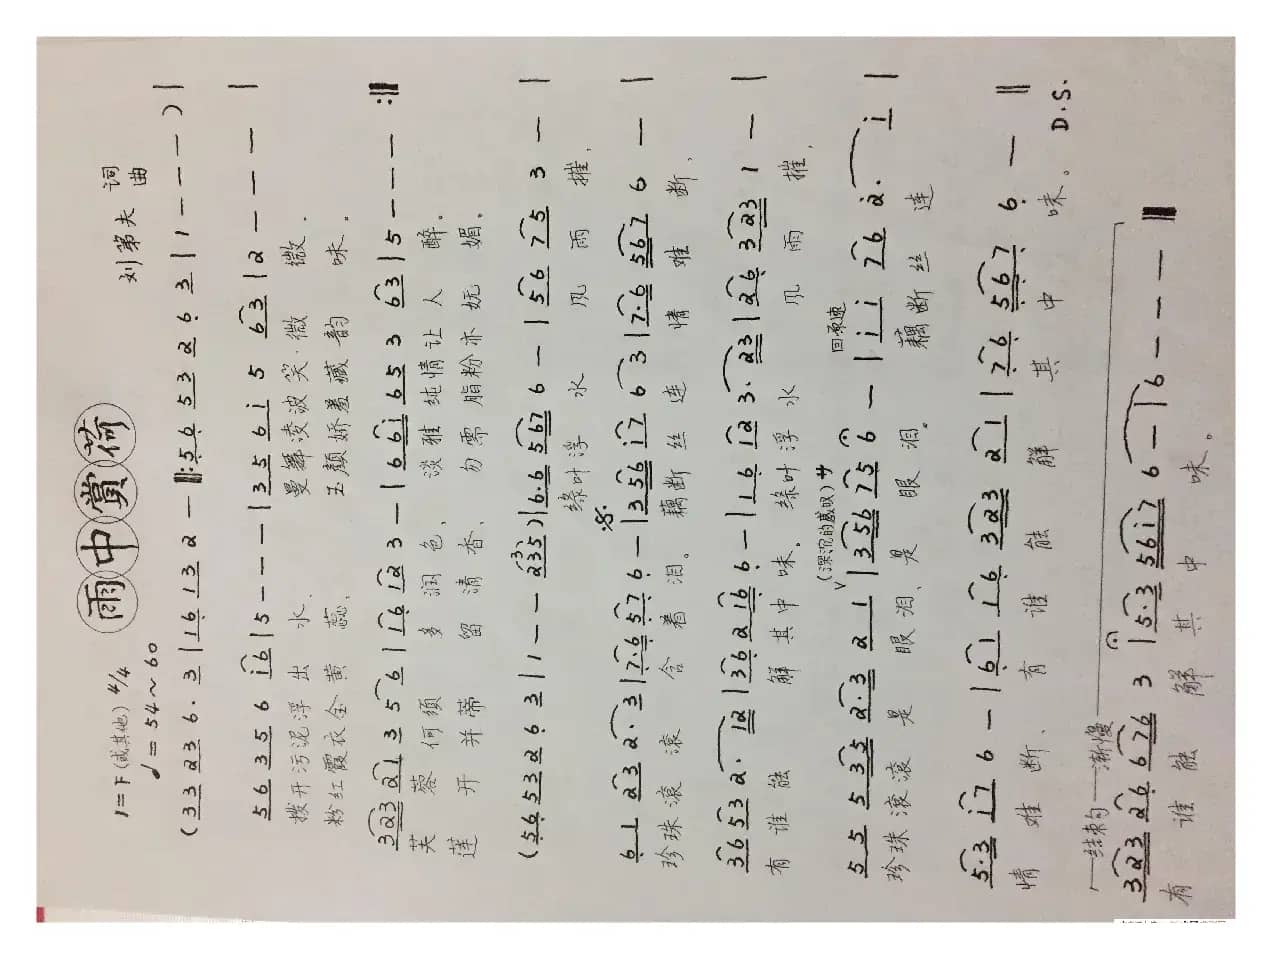 雨中赏荷
1=F(或其他) 4/4
♩=54~60
刘第夫 词曲
(3 3 2 3 6· 3 | 1 6 1 3 2 — ‖: 5 6 5 3 2 6 3 | 1 — — — ) |
5 6 3 5 6 i 6 | 5 — — — | 3 5 6 i 5 6 3 | 2 — — — |
拨开污泥浮出水、曼舞凌波笑·微微.
粉红霞衣金黄蕊、玉颜娇羞藏韵味.
3 2 3 2 1 3 5 6 | 1 6 1 2 3 — | 6 6 i 6 5 3 6 3 | 5 — — — :‖
芙蓉何须多润色、淡雅纯情让人醉。
莲开并蒂留清香、勿需脂粉亦妩媚。
(5 6 5 3 2 6 3 | 1 — — 2 3 5 ) | 6· 6 5 6 7 6 — | 5 6 7 5 3 — |
绿叶浮水风雨摧、
6 1 2 3 2· 3 | 7· 6 5 7 6 — | 3 5 6 i 7 6 3 | 7· 6 5 6 7 6 — |
珍珠滚滚含着泪。藕断丝连情难断、
3 6 5 3 2· 1 2 | 3 6 2 1 6 6 — | 1 6 1 2 3· 2 3 | 2 6 3 2 3 1 — |
有谁能解其中味。绿叶浮水风雨摧、
(深沉的感叹) 廾 回原速
5 5 5 3 5 2· 3 2 1 | 3 5 6 7 5 6 — | i i i 7 6 2· i |
珍珠滚滚是眼泪、是眼泪。藕断丝连
5· 3 i 7 6 — | 6 1 1 6 3 2 3 2 1 | 7 6 5 6 7 6 — ‖
情难断、有谁能解其中味。
D.S.
结束句 渐慢
3 2 3 2 6 6 7 6 3 | 5· 3 5 6 i 7 6 — | 6 — — — ‖
有谁能解其中味。